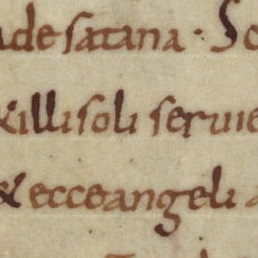 ade satana · Sc
& illi soli seruie
& ecce angeli a